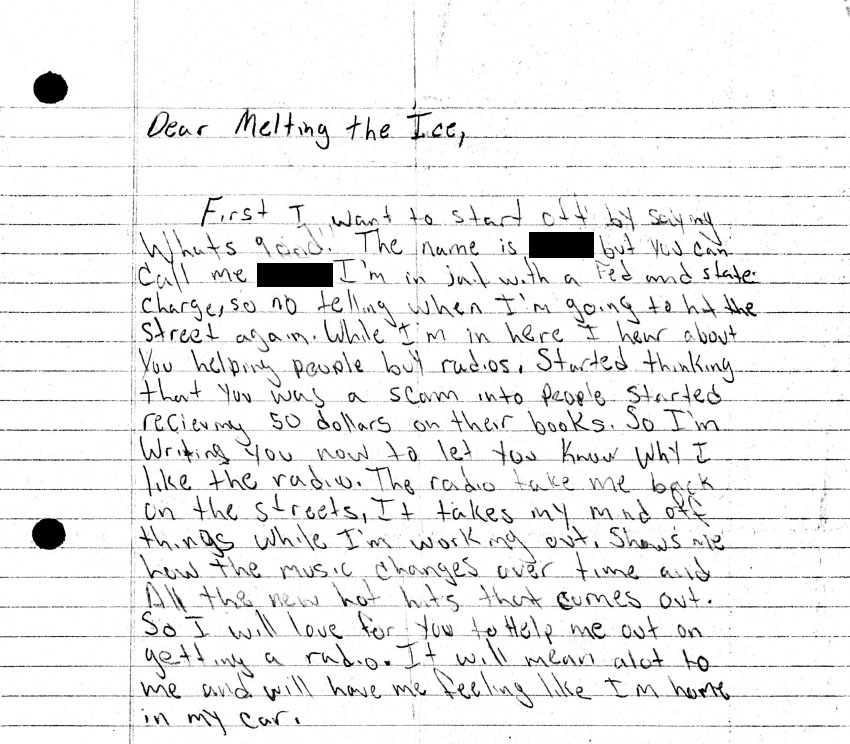 Dear Melting the Ice,
First I want to start off by saying
Whats good. The name is but you can
call me I'm in jail with a Fed and state
charge, so no telling when I'm going to hit the
street again. While I'm in here I hear about
You helping people buy radios. Started thinking
that You was a scam into people started
recieving 50 dollars on their books. So I'm
Writing You now to let You Know Why I
like the radio. The radio take me back
on the streets, It takes my mind off
things while I'm working out. Shows me
how the music changes over time and
All the new hot hits that comes out.
So I will love for You to Help me out on
getting a radio. It will mean alot to
me and will have me feeling like I'm home
in my car.